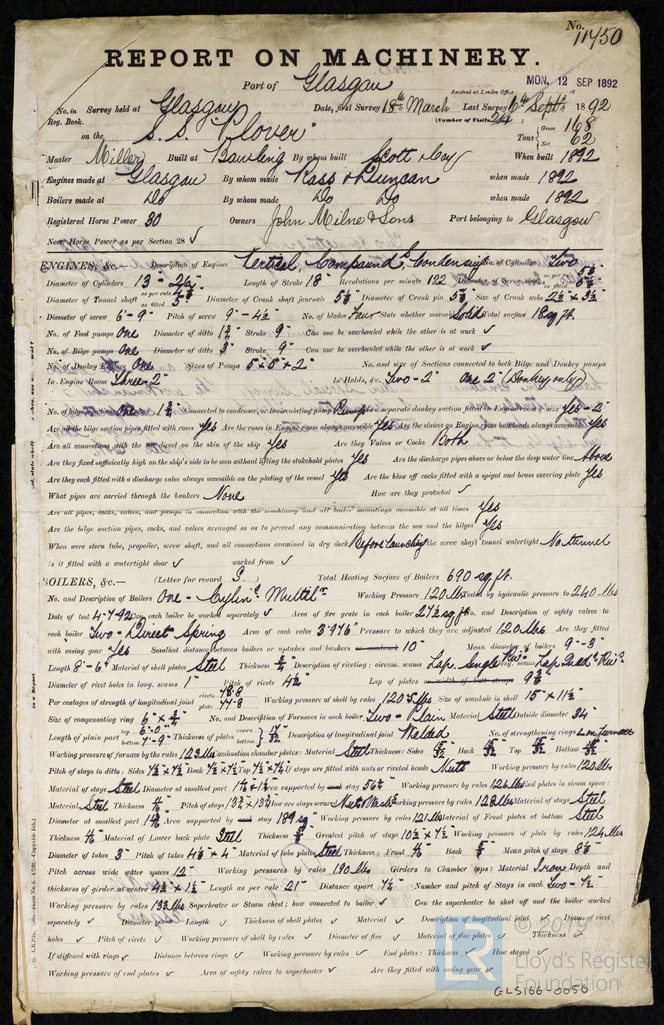 No. 11450
REPORT ON MACHINERY.
Port of Glasgow
Received at London Office MON. 12 SEP 1892
No. in Survey held at Glasgow Date, first Survey 18th March Last Survey 6th Sept 1892
Reg. Book. (Number of Visits 24)
on the S.S. "Plover" Tons Gross 168 Net 62
Master Miller Built at Bowling By whom built Scott & Coy When built 1892
Engines made at Glasgow By whom made Ross & Duncan when made 1892
Boilers made at Do By whom made Do Do when made 1892
Registered Horse Power 30 Owners John Milne & Sons Port belonging to Glasgow
Nom. Horse Power as per Section 28 ✓
ENGINES, &c.— Description of Engines Vertical, Compound & Condensing No. of Cylinders Two
Diameter of Cylinders 13" - 26" Length of Stroke 18" Revolutions per minute 122
Diameter of Tunnel shaft Diameter of Crank shaft journals 5½" Diameter of Crank pin 5½" Size of Crank webs 2½ x 3½"
Diameter of screw 6'-9" Pitch of screw 9'-4½" No. of blades Four State whether moveable Solid Total surface 18 sq ft.
No. of Feed pumps One Diameter of ditto Stroke 9" Can one be overhauled while the other is at work ✓
No. of Bilge pumps One Diameter of ditto 3" Stroke 9" Can one be overhauled while the other is at work ✓
No. of Donkey Engines One Sizes of Pumps 5" x 5" x 2" No. and size of Suctions connected to both Bilge and Donkey pumps
In Engine Room Three - 2" In Holds, &c. Two - 2" One 2" (Donkey only)
No. of bilge injections One Connected to condenser, or to circulating pump Pump Is a separate donkey suction fitted in Engine room & size Yes - 2"
Are all the bilge suction pipes fitted with roses Yes Are the roses in Engine room always accessible Yes Are the sluices on Engine room bulkheads always accessible Yes
Are all connections with the sea direct on the skin of the ship Yes Are they Valves or Cocks Both
Are they fixed sufficiently high on the ship's side to be seen without lifting the stokehold plates Yes Are the discharge pipes above or below the deep water line Above
Are they each fitted with a discharge valve always accessible on the plating of the vessel Yes Are the blow off cocks fitted with a spigot and brass covering plate Yes
What pipes are carried through the bunkers None How are they protected ✓
Are all pipes, cocks, valves, and pumps in connection with the machinery and all boiler mountings accessible at all times Yes
Are the bilge suction pipes, cocks, and valves arranged so as to prevent any communication between the sea and the bilges Yes
When were stern tube, propeller, screw shaft, and all connections examined in dry dock Before launching Is the screw shaft tunnel watertight No tunnel
Is it fitted with a watertight door ✓ worked from ✓
BOILERS, &c.— (Letter for record S.) Total Heating Surface of Boilers 690 sq. ft.
No. and Description of Boilers One - Working Pressure 120 lbs Tested by hydraulic pressure to 240 lbs
Date of test 4-7-92 Can each boiler be worked separately ✓ Area of fire grate in each boiler 27½ sq ft No. and Description of safety valves to
each boiler Two - Direct Spring Area of each valve 3.976" Pressure to which they are adjusted 120 lbs Are they fitted
with easing gear Yes Smallest distance between boilers or uptakes and bunkers 10" Mean diameter of boilers 9'-3"
Length 8'-6" Material of shell plates Steel Thickness Description of riveting: circum. seams Lap. Single Riv. long. seams
Diameter of rivet holes in long. seams 1" Pitch of rivets 4½" Lap of plates
Per centages of strength of longitudinal joint rivets plate 77.8 Working pressure of shell by rules Size of manhole in shell 15" x 11½"
Size of compensating ring No. and Description of Furnaces in each boiler Two - Plain Material Steel Outside diameter 34"
Length of plain part top 6'-0" bottom Thickness of plates crown bottom Description of longitudinal joint Welded No. of strengthening rings
Working pressure of furnace by the rules 123 lbs Combustion chamber plates: Material Steel Thickness: Sides Back Top Bottom
Pitch of stays to ditto: Sides 7½ x 7½ Back 7½ x 7½ Top 7½ x 7½ If stays are fitted with nuts or riveted heads Nuts Working pressure by rules 120 lbs
Material of stays Steel Diameter at smallest part Area supported by each stay 56¼" Working pressure by rules 126 lbs End plates in steam space:
Material Steel Thickness Pitch of stays How are stays secured Working pressure by rules 128 lbs Material of stays Steel
Diameter at smallest part Area supported by each stay 189 sq" Working pressure by rules 121 lbs Material of Front plates at bottom Steel
Thickness Material of Lower back plate Steel Thickness Greatest pitch of stays Working pressure of plate by rules 124 lbs
Diameter of tubes 3" Pitch of tubes 4½ x 4" Material of tube plates Steel Thickness: Front Back Mean pitch of stays
Pitch across wide water spaces 12" Working pressures by rules 130 lbs Girders to Chamber tops: Material Iron Depth and
thickness of girder at centre Length as per rule 21" Distance apart 7½" Number and pitch of Stays in each Two - 7½"
Working pressure by rules 133 lbs Superheater or Steam chest; how connected to boiler ✓ Can the superheater be shut off and the boiler worked
separately ✓ Diameter ✓ Length ✓ Thickness of shell plates ✓ Material ✓ Description of longitudinal joint ✓ Diam. of rivet
holes ✓ Pitch of rivets ✓ Working pressure of shell by rules ✓ Diameter of flue ✓ Material of flue plates ✓ Thickness ✓
If stiffened with rings ✓ Distance between rings ✓ Working pressure by rules ✓ End plates: Thickness ✓ How stayed ✓
Working pressure of end plates ✓ Area of safety valves to superheater ✓ Are they fitted with easing gear ✓
© 2019
LR Lloyd's Register
Foundation
GLS166-0056